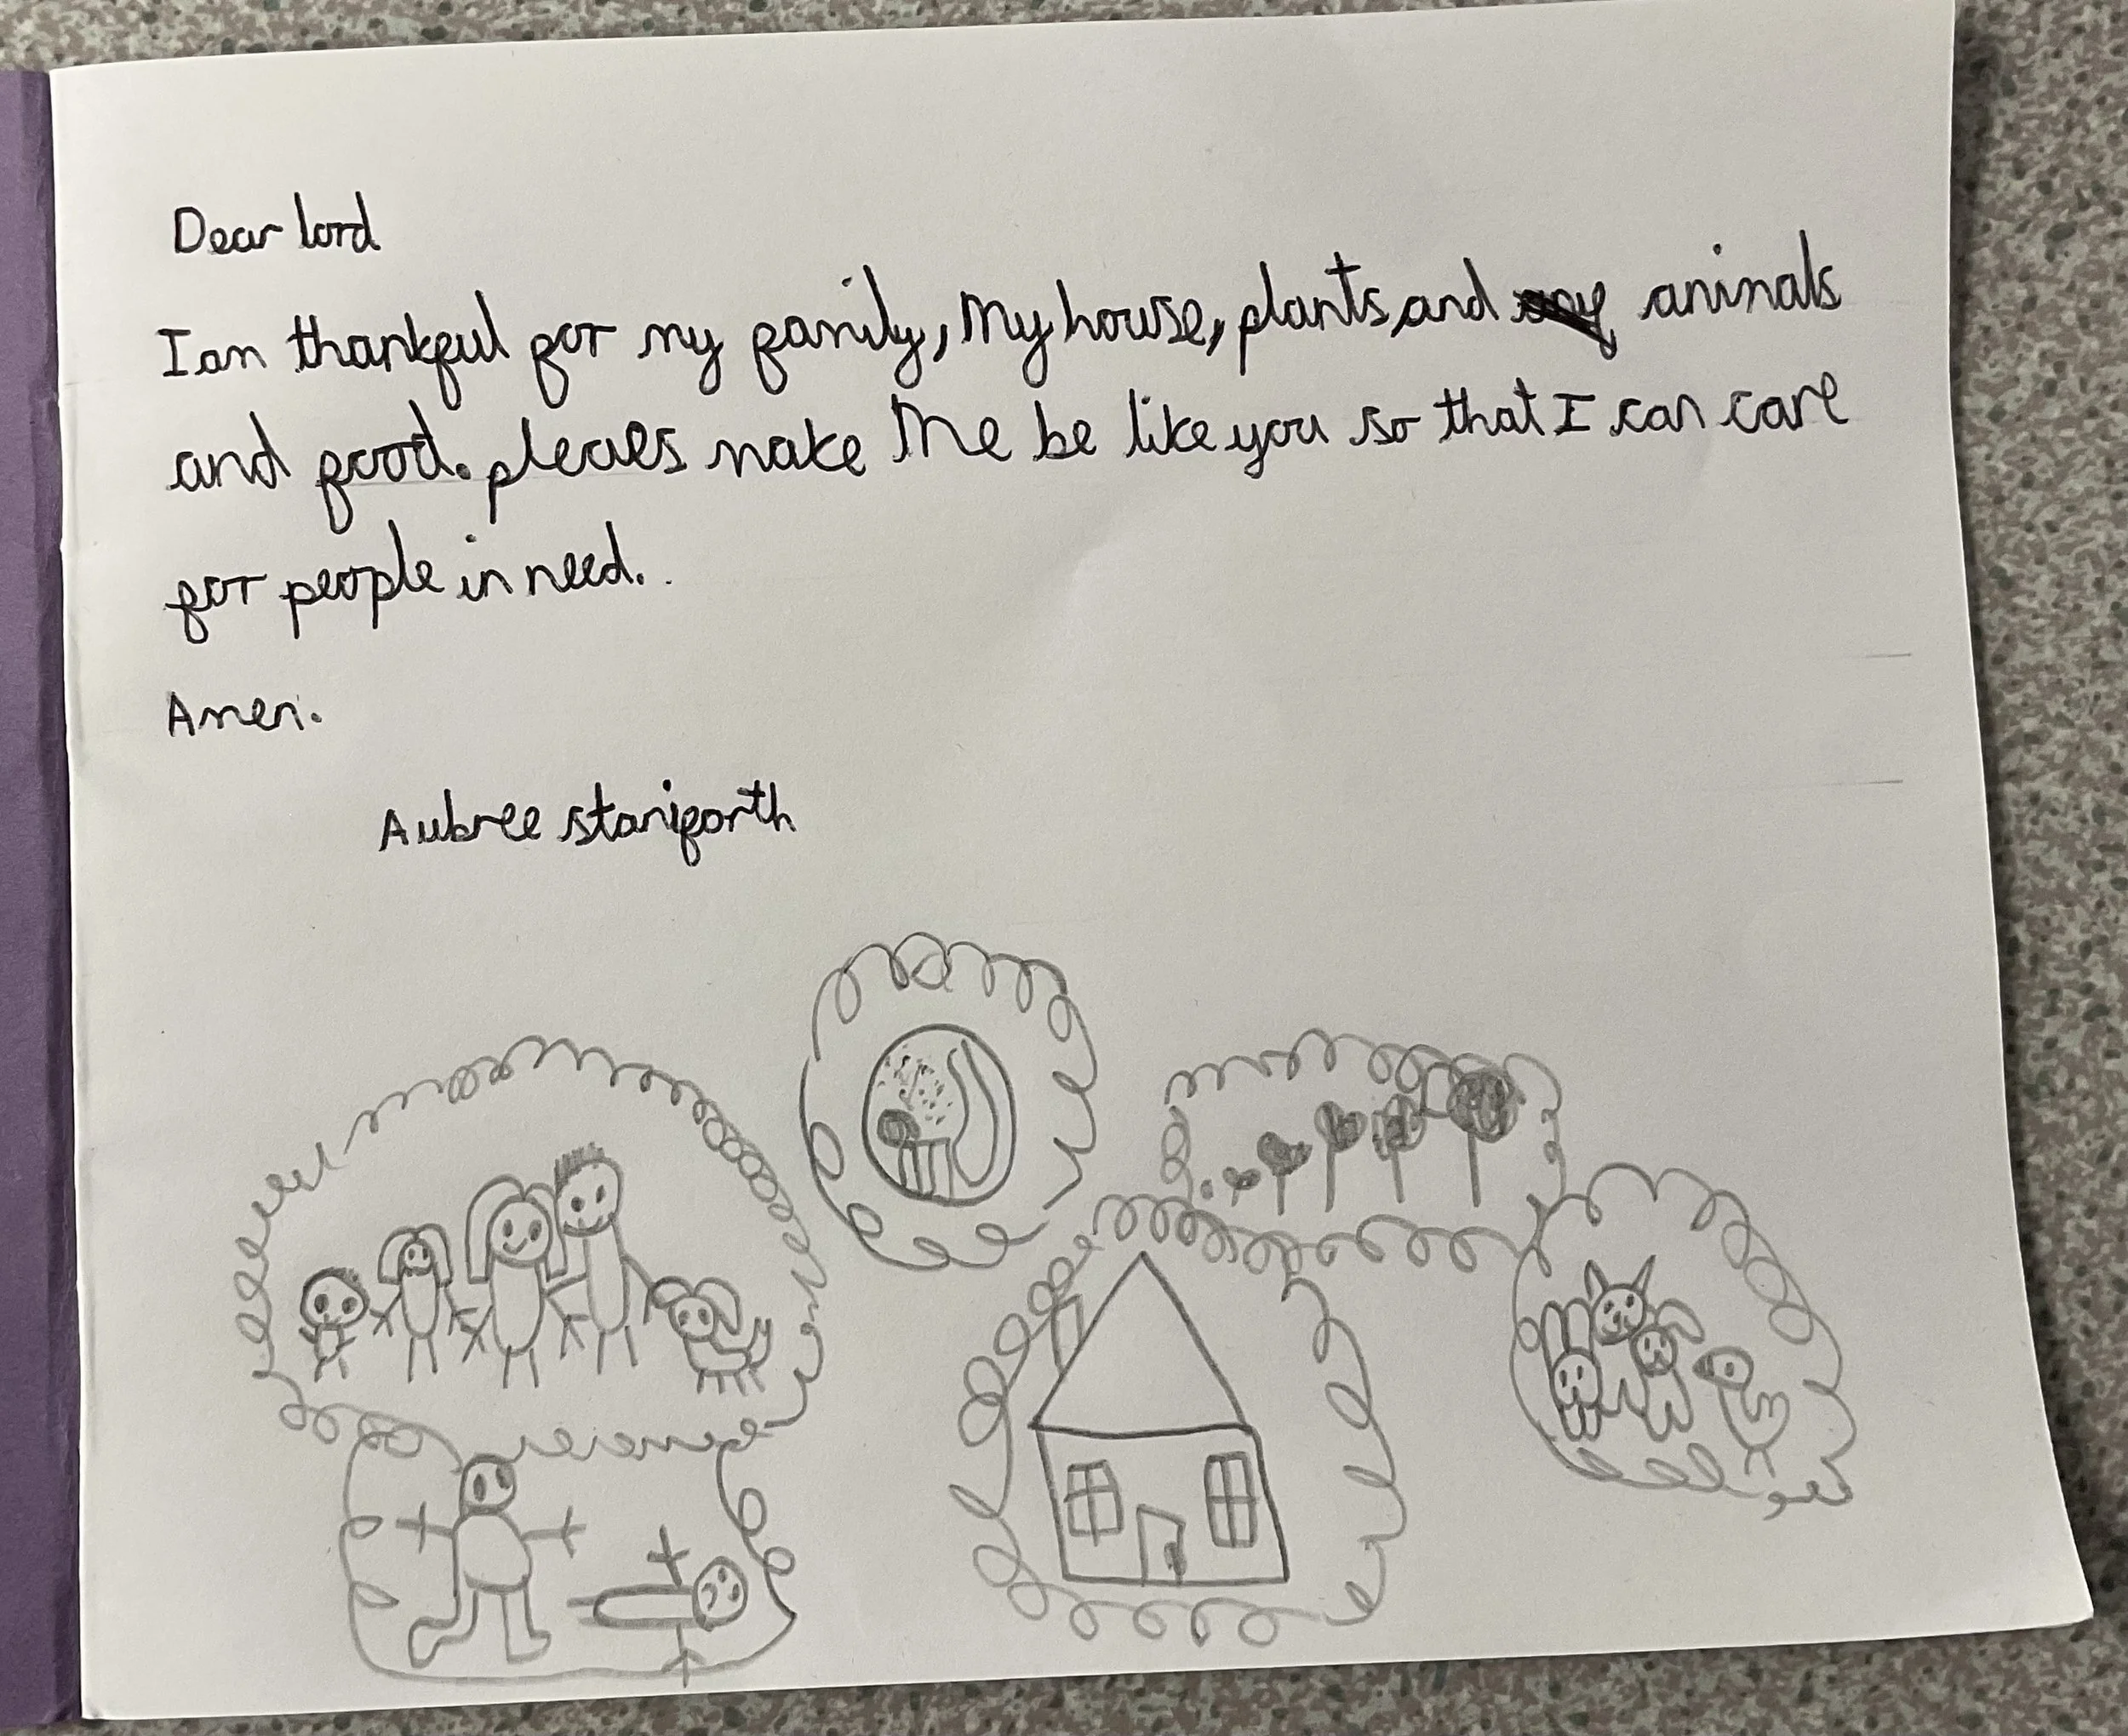 Dear lord
I am thankful for my family, My house, plants, and animals
and food. pleaes make Me be like you so that I can care
for people in need.
Amen.
Aubree staniforth